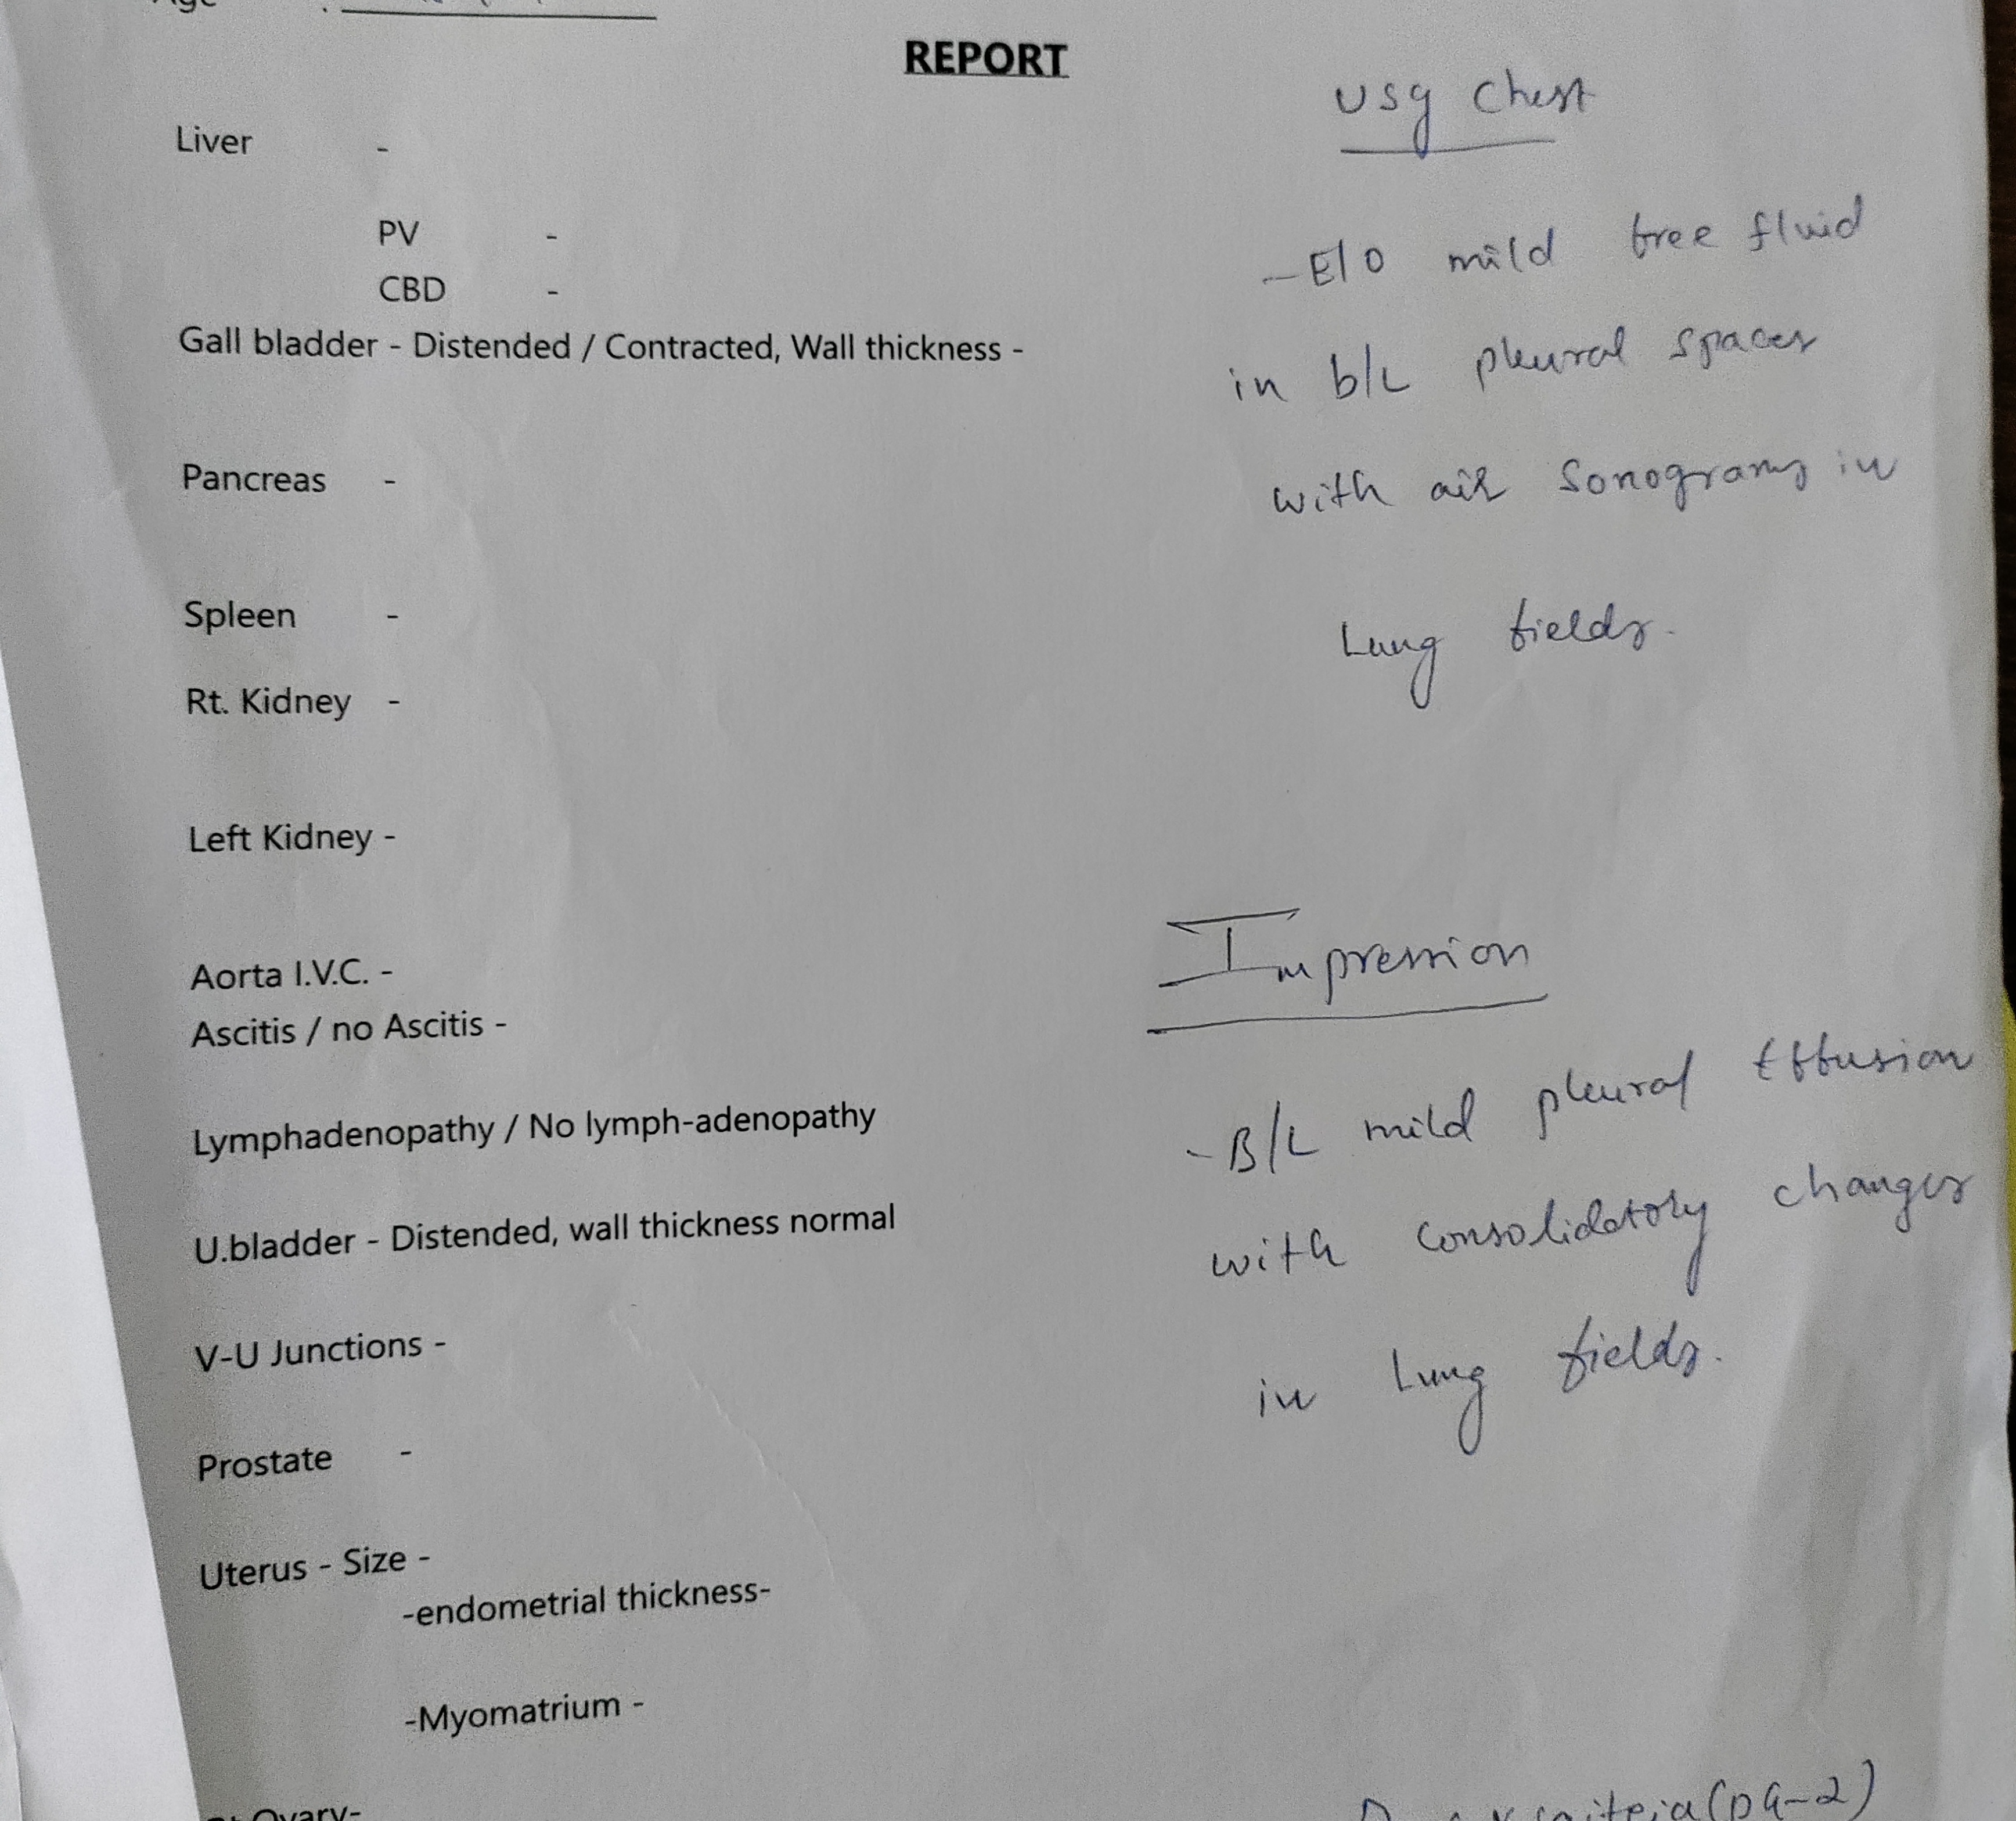 REPORT
USG Chest
Liver -
PV -
CBD -
- E/O mild free fluid
Gall bladder - Distended / Contracted, Wall thickness -
in b/L pleural spaces
Pancreas -
with air Sonograms in
Spleen -
Lung fields.
Rt. Kidney -
Left Kidney -
Impression
Aorta I.V.C. -
Ascitis / no Ascitis -
- B/L mild pleural Effusion
Lymphadenopathy / No lymph-adenopathy
with consolidatory changes
U.bladder - Distended, wall thickness normal
in Lung fields.
V-U Junctions -
Prostate -
Uterus - Size -
-endometrial thickness-
-Myomatrium -
Ovary-